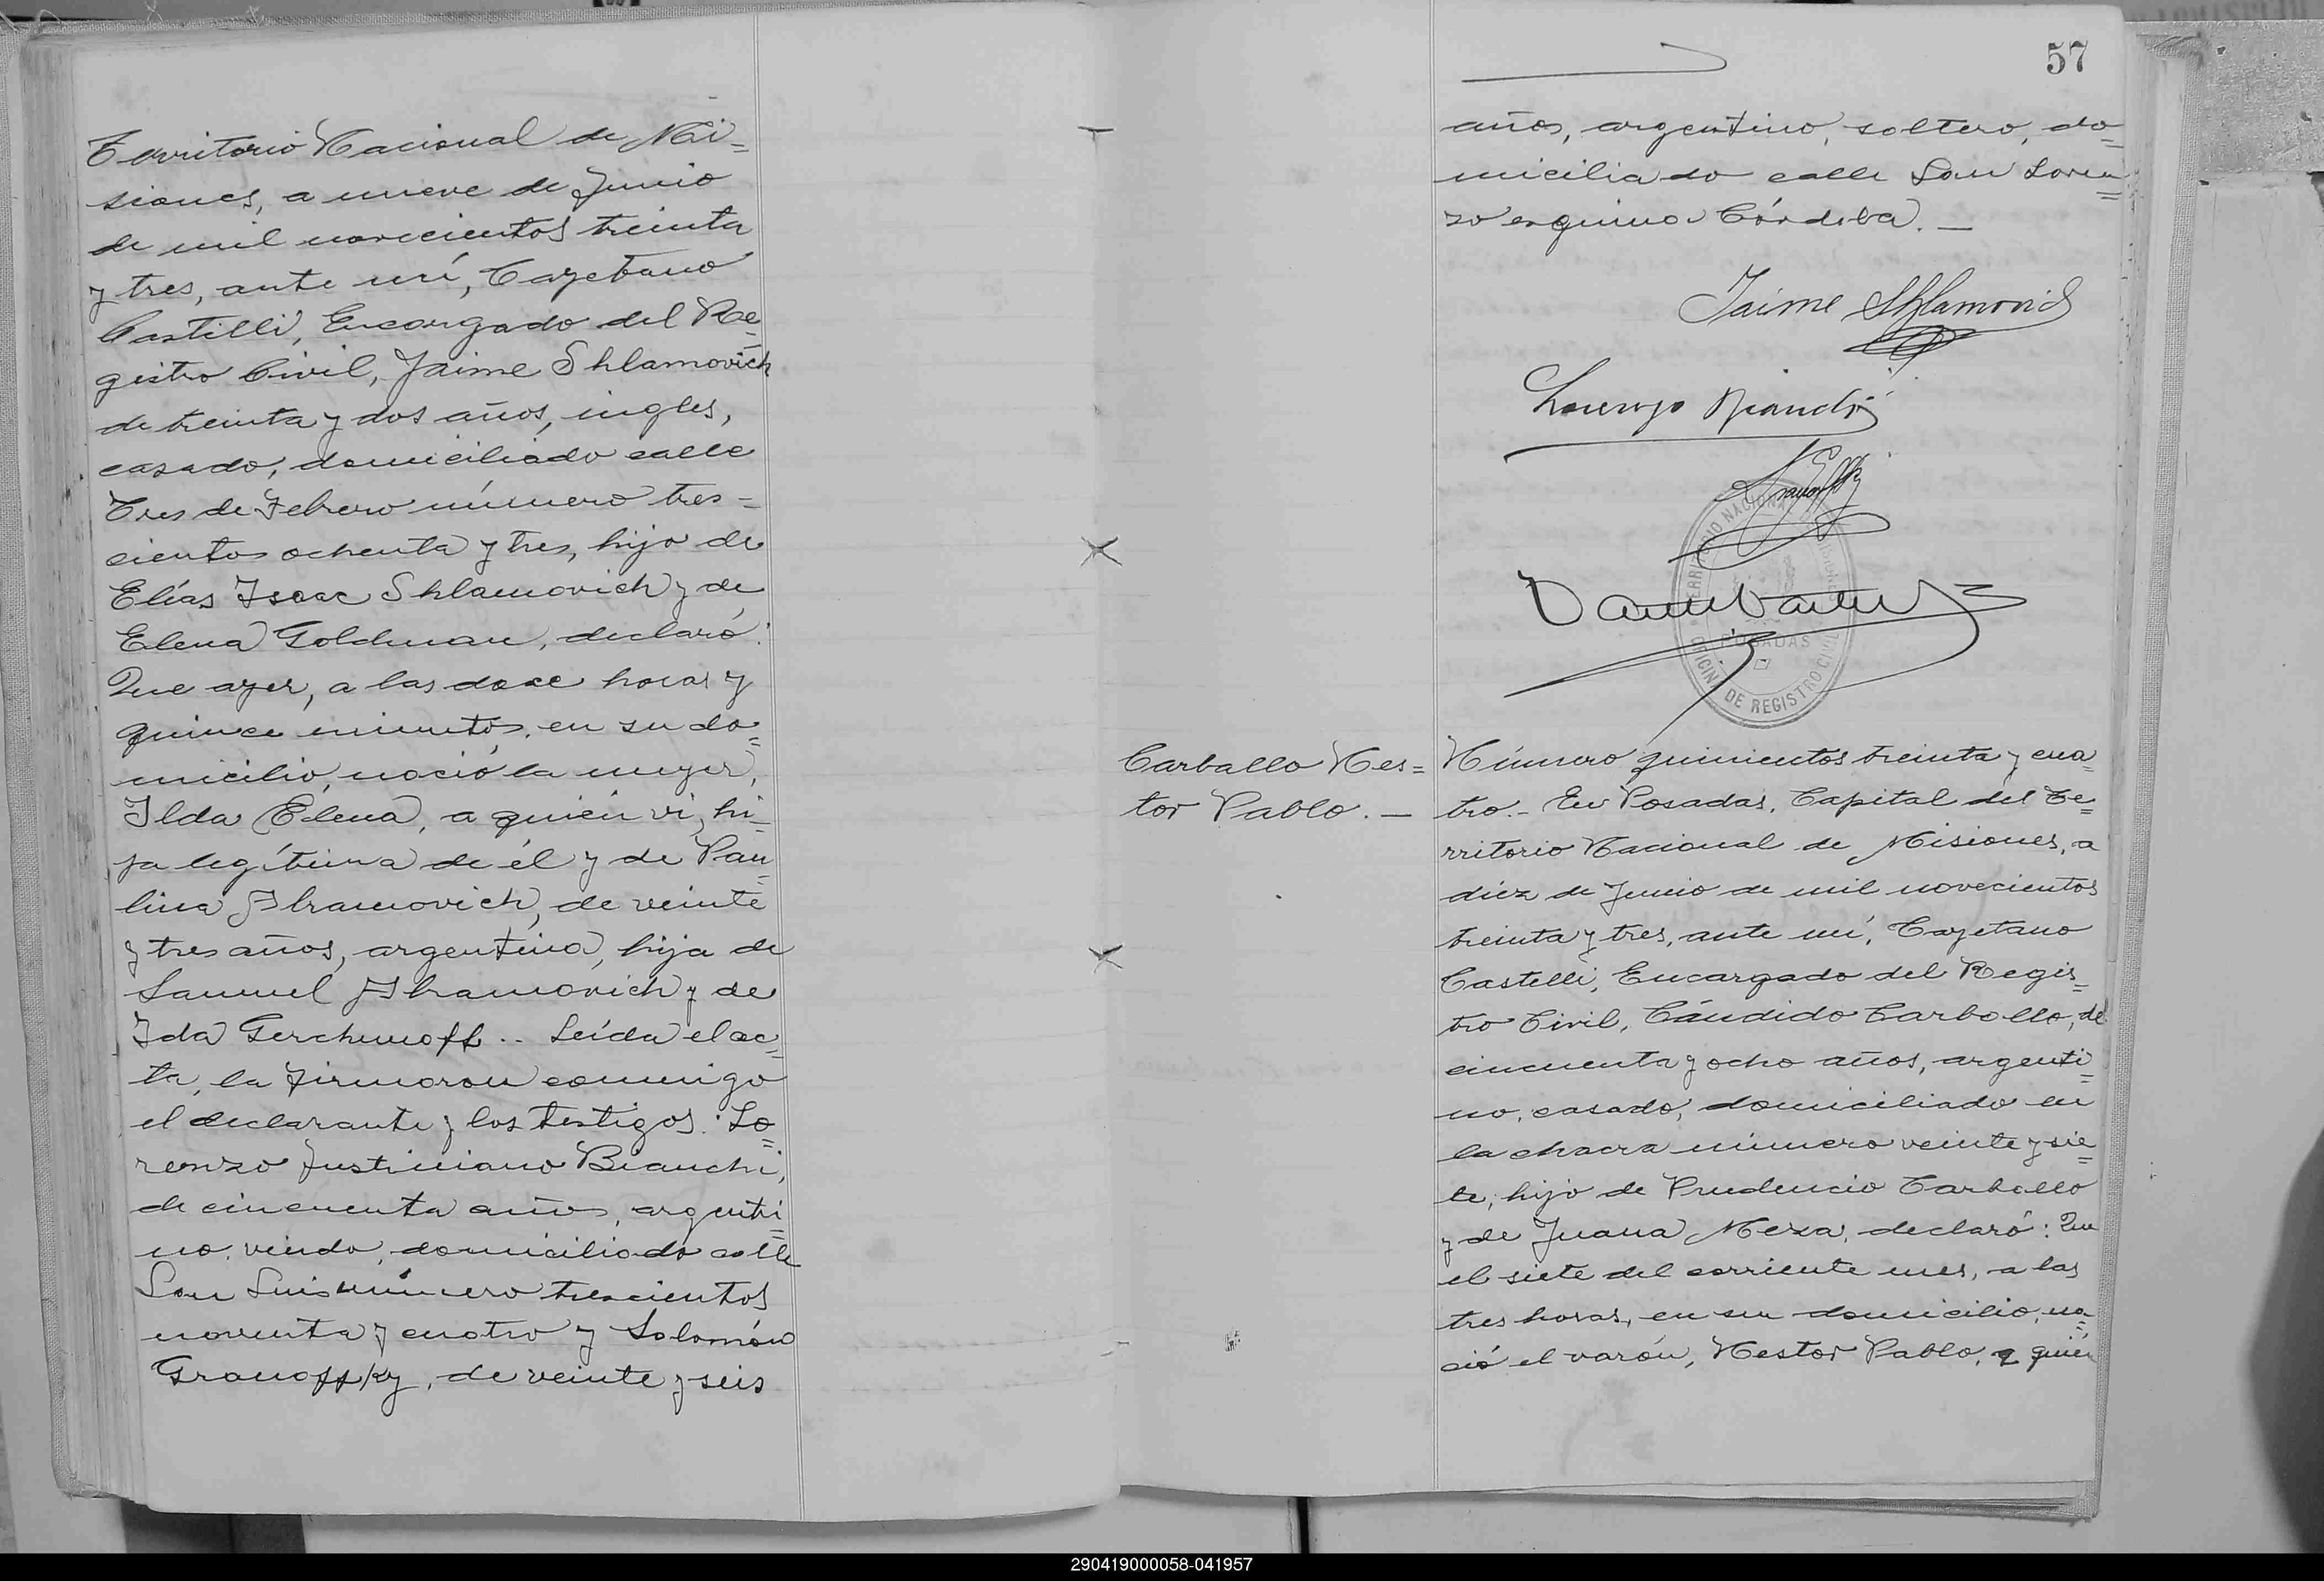 Territorio Nacional de Mi=
siones, a nueve de Junio
de mil novecientos treinta
y tres, ante mí, Cayetano
Castelli, Encargado del Re=
gistro Civil, Jaime Shlamovich
de treinta y dos años, ingles,
casado, domiciliado calle
Tres de Febrero número tres=
cientos ochenta y tres, hijo de
Elías Isaac Shlamovich y de
Elena Goldman, declaró:
Que ayer, a las doce horas y
quince minutos, en su do=
micilio, nació la mujer,
Ilda Elena, a quien vi, hi=
ja legítima de él y de Pau=
lina Abramovich, de veinte
y tres años, argentina, hija de
Samuel Abramovich y de
Ida Gerchunoff.- Leída el ac=
ta, la firmaron conmigo
el declarante y los testigos: Lo=
renzo Justiniano Bianchi,
de cincuenta años, argenti=
no, viudo, domiciliado calle
San Luis número trescientos
noventa y cuatro y Salomón
Granoffky, de veinte y seis
57
años, argentino, soltero, do=
miciliado calle San Loren=
zo esquina Córdoba.—
Jaime Shlamovich
Lorenzo Bianchi
TERRITORIO NACIONAL
POSADAS
OFICINA DE REGISTRO CIVIL
Carballo Nes=
tor Pablo.—
Número quinientos treinta y cua=
tro.- En Posadas, Capital del Te=
rritorio Nacional de Misiones, a
diez de Junio de mil novecientos
treinta y tres, ante mí, Cayetano
Castelli, Encargado del Regis=
tro Civil, Cándido Carballo, de
cincuenta y ocho años, argenti=
no, casado, domiciliado en
la chacra número veinte y sie=
te, hijo de Prudencio Carballo
y de Juana Meza, declaró: Que
el siete del corriente mes, a las
tres horas, en su domicilio, na=
ció el varón, Nestor Pablo, a quien
290419000058-041957